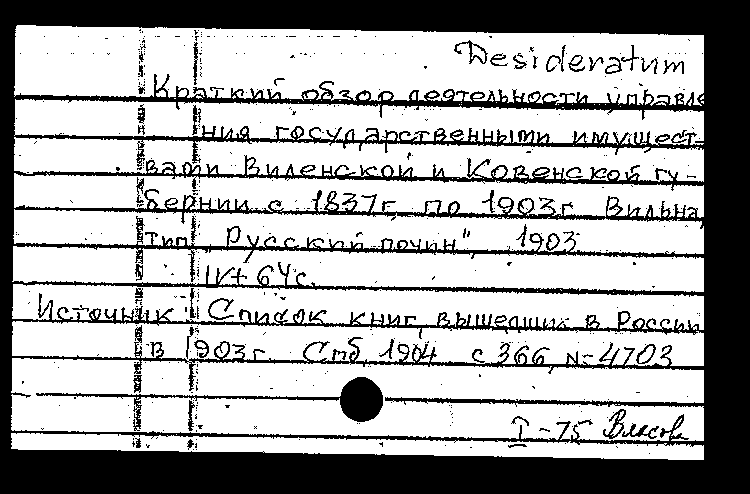 Desideratum
Краткий обзор деятельности управле
ния государственными имущест-
вами Виленской и Ковенской гу-
бернии с 1837г. по 1903г. Вильна,
тип. „Русский почин", 1903
IV+64с.
Источник: Список книг, вышедших в России
в 1903г. Спб, 1904 с 366, №4703
I-75 Власова